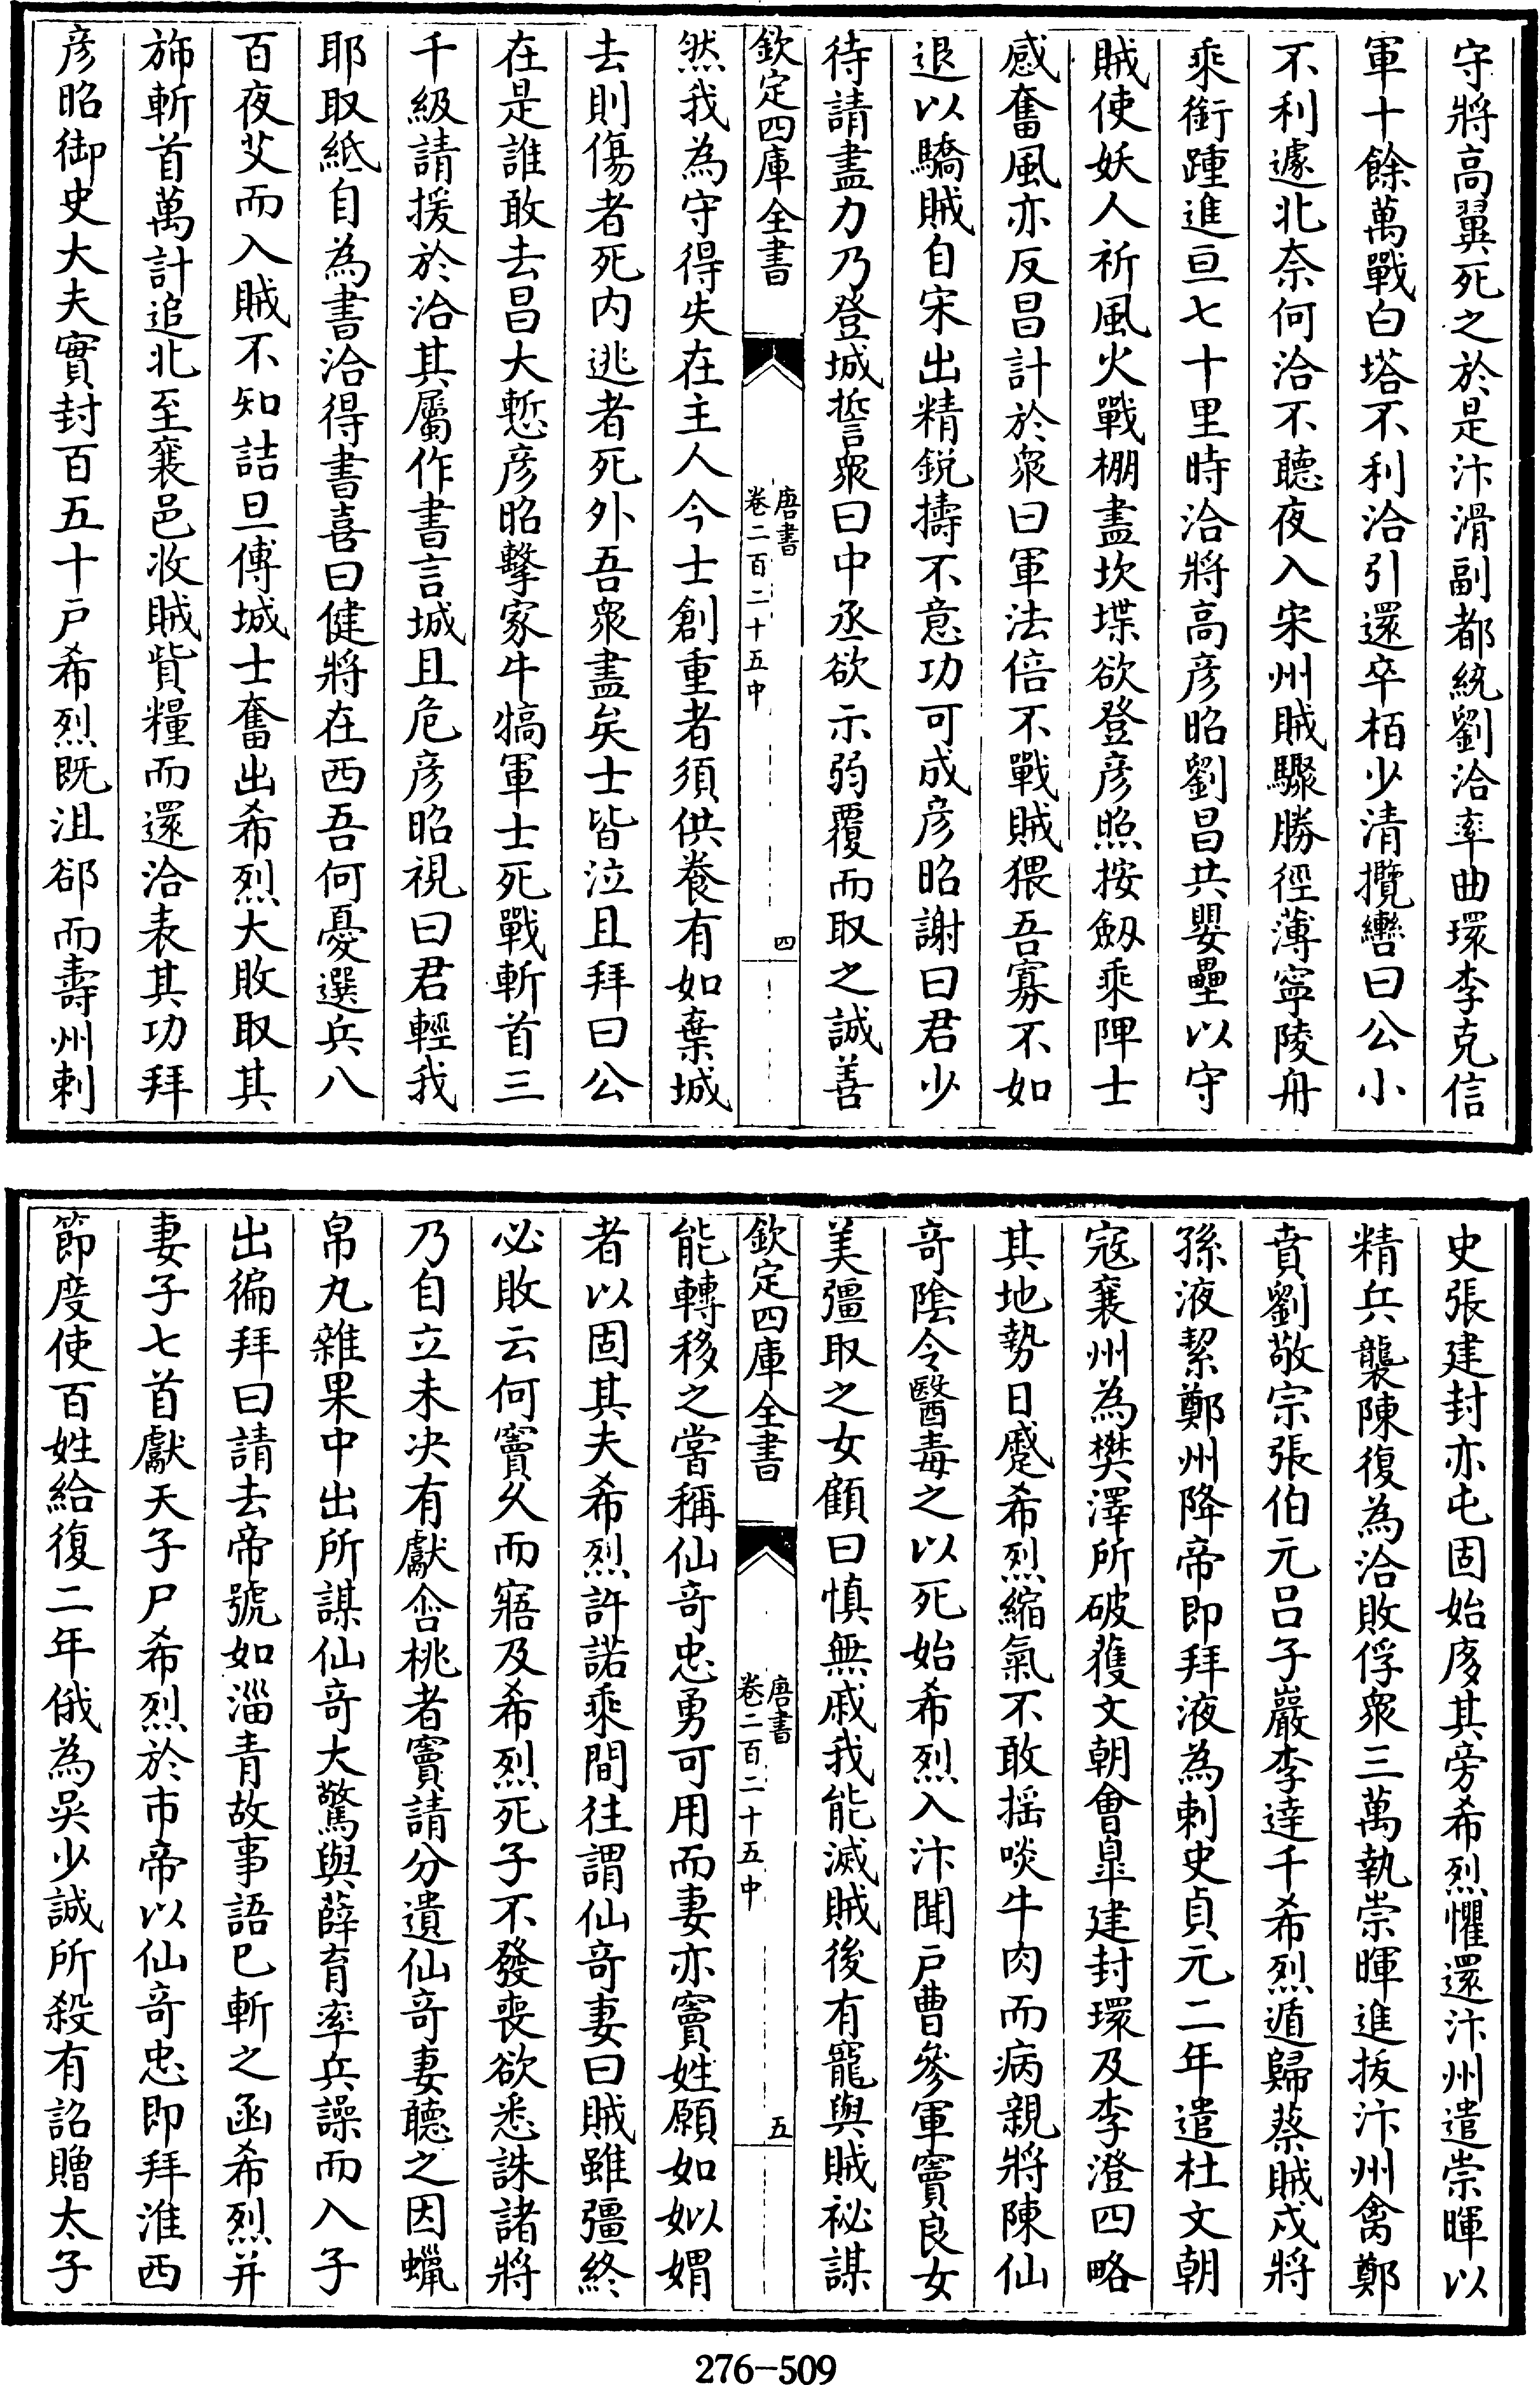 守將高翼死之於是汴滑副都統劉洽率曲環李克信
軍十餘萬戰白塔不利洽引還卒栢少清攬轡曰公小
不利遽北奈何洽不聽夜入宋州賊驟勝徑薄寧陵舟
乘銜踵進亘七十里時洽將高彦昭劉昌共嬰壘以守
賊使妖人祈風火戰棚盡坎堞欲登彦照按劒乘陴士
感奮風亦反昌計於衆曰軍法倍不戰賊猥吾寡不如
退以驕賊自宋出精鋭擣不意功可成彦昭謝曰君少
待請盡力乃登城誓衆曰中丞欲示弱覆而取之誠善
欽定四庫全書
唐書
卷二百二十五中
四
然我為守得失在主人今士創重者須供養有如棄城
去則傷者死内逃者死外吾衆盡矣士皆泣且拜曰公
在是誰敢去昌大慙彦昭擊家牛犒軍士死戰斬首三
千級請援於洽其屬作書言城且危彦昭視曰君輕我
耶取紙自為書洽得書喜曰健將在西吾何憂選兵八
百夜艾而入賊不知詰旦傅城士奮出希烈大敗取其
斾斬首萬計追北至襄邑收賊貲糧而還洽表其功拜
彦昭御史大夫實封百五十户希烈既沮郤而壽州刺
史張建封亦屯固始庤其旁希烈懼還汴州遣崇暉以
精兵襲陳復為洽敗俘衆三萬執崇暉進拔汴州禽鄭
賁劉敬宗張伯元吕子巖李達干希烈遁歸蔡賊戍將
孫液絜鄭州降帝即拜液為刺史貞元二年遣杜文朝
寇襄州為樊澤所破蒦文朝會皐建封環及李澄四略
其地勢日蹙希烈縮氣不敢揺啖牛肉而病親將陳仙
奇隂令醫毒之以死始希烈入汴聞户曹參軍竇良女
美彊取之女顧曰慎無戚我能滅賊後有寵與賊祕謀
欽定四庫全書
唐書
卷二百二十五中
五
能轉移之嘗稱仙奇忠勇可用而妻亦竇姓願如姒媦
者以固其夫希烈許諾乘間往謂仙奇妻曰賊雖彊終
必敗云何竇久而寤及希烈死子不發喪欲悉誅諸將
乃自立未决有獻含桃者竇請分遺仙奇妻聽之因蠟
帛丸雜果中出所謀仙奇大驚與薛育率兵譟而入子
出徧拜曰請去帝號如淄青故事語已斬之函希烈并
妻子七首獻天子尸希烈於市帝以仙奇忠即拜淮西
節度使百姓給復二年俄為吳少誠所殺有詔贈太子
276-509